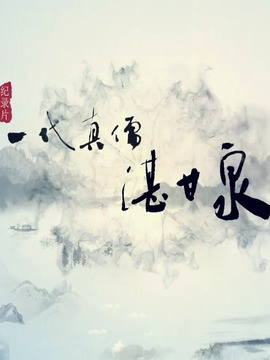 纪录片
一代真儒
湛甘泉